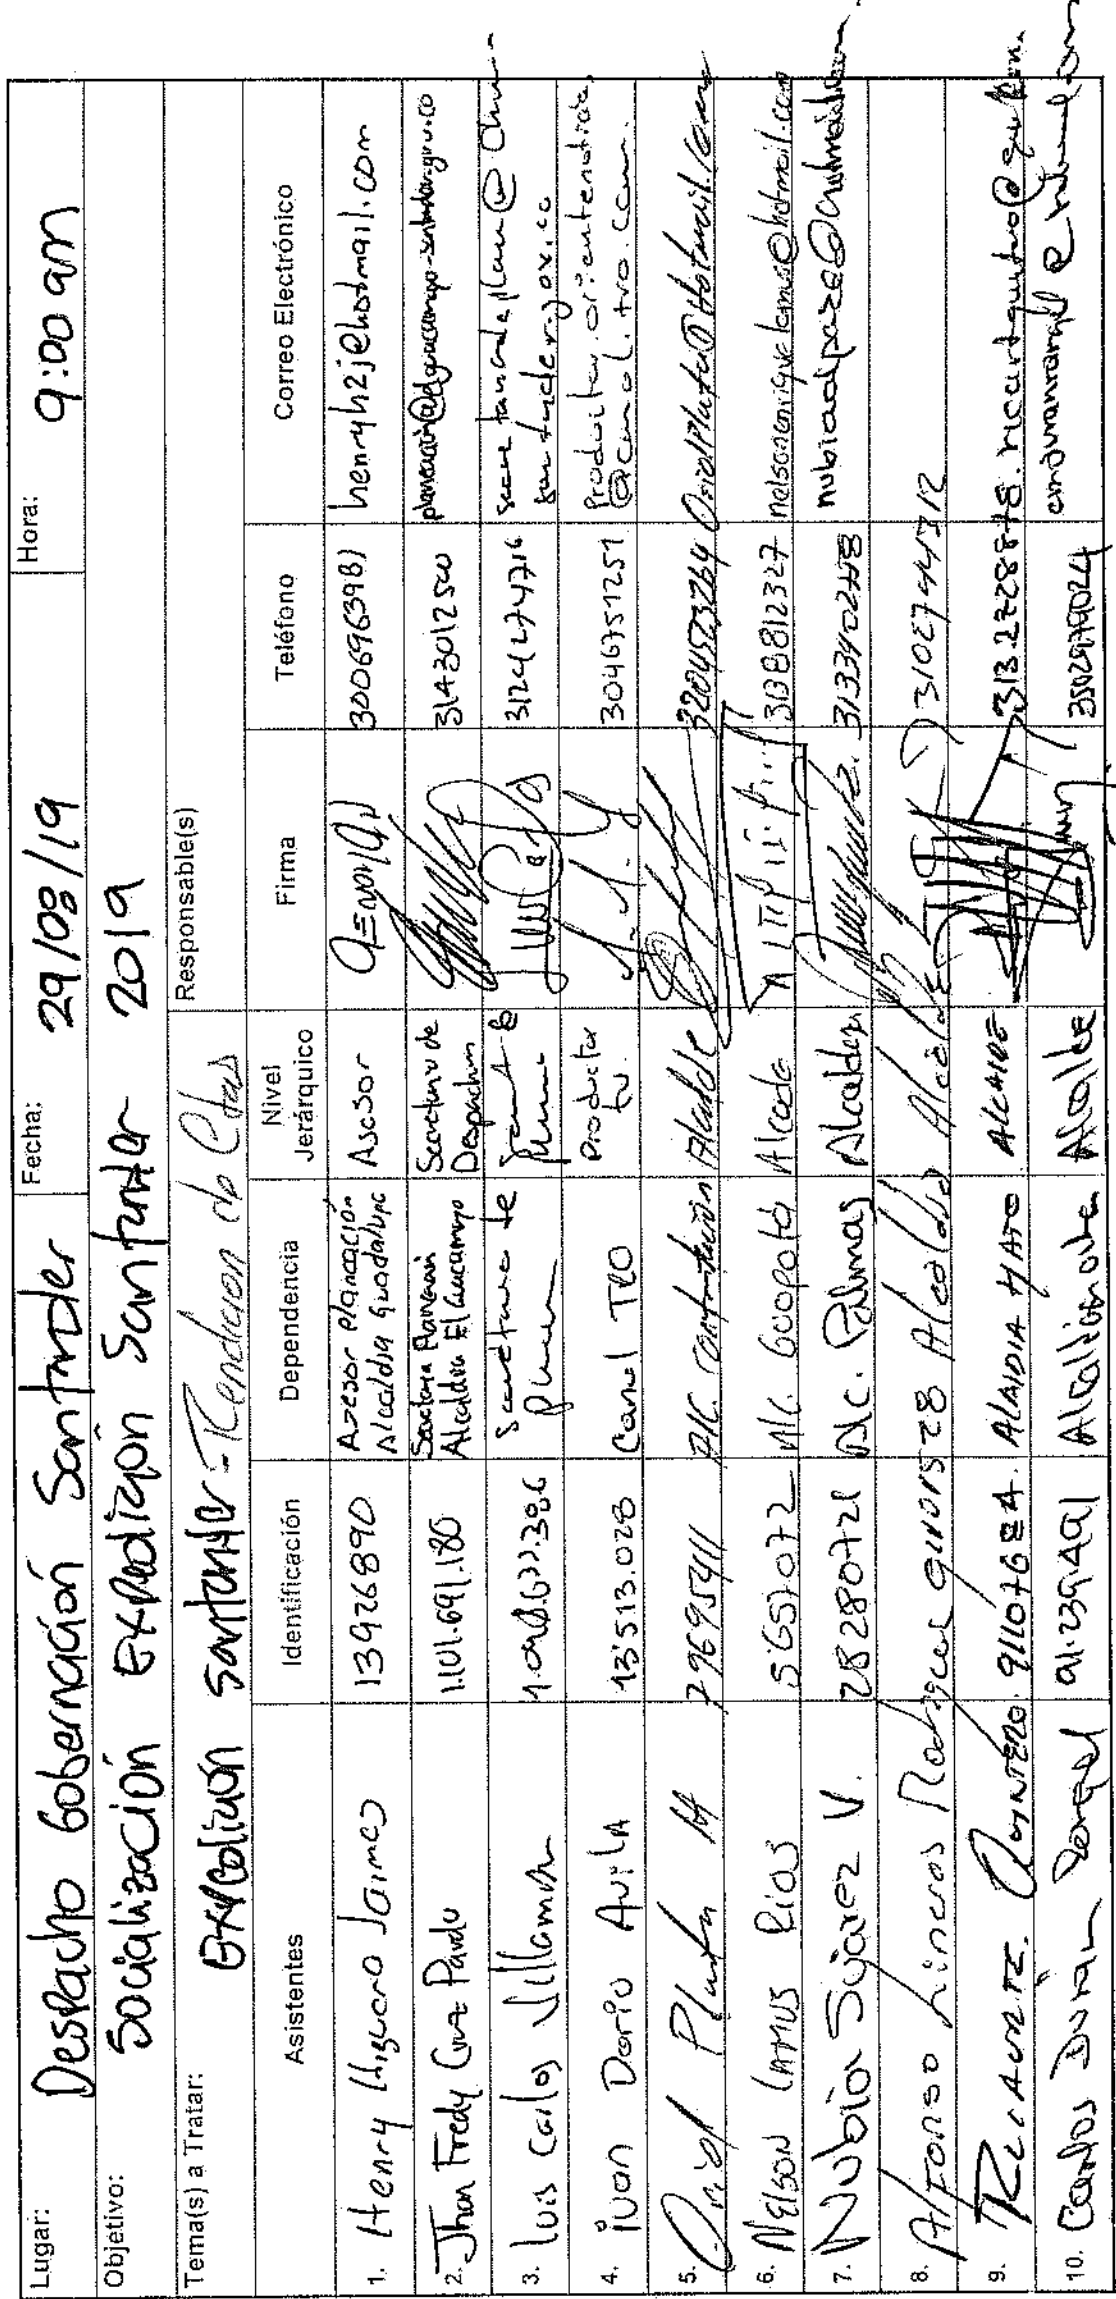 Lugar: Despacho Gobernación Santander Fecha: 29/08/19 Hora: 9:00 am
Objetivo: Socialización Expedición Santander 2019
Tema(s) a Tratar: Expedición Santander - Rendicion de Ctas Responsable(s)
Asistentes Identificación Dependencia Nivel Jerárquico Firma Teléfono Correo Electrónico
1. Henry Higuera Jaimes 13926890 Asesor Planeación Alcaldia Guadalupe Asesor 3006963981 henryh2j@hotmail.com
2. Jhon Fredy Cruz Pardo 1.101.691.180 Secretaria Planeación Alcaldia El Guacamayo Secretario de Despacho 3143012500 planeacion@elguacamayo-santander.gov.co
3. Luis Carlos Villamar Secretario de
4. Ivan Dario Avila 13'513.028 Canal TRO Productor tv. 3046751251 Productor.orientenoticias @canaltro.com.
5. Oriol Plata M 79695411 Alc. Contratación Alcalde 3204523264 OriolPlata@Hotmail.com
6. Nelson Lamus Rios 5'657.072 Alc. Guapotá Alcalde 3138812327 nelsonenriquelamus@hotmail.com
7. Nubia Suárez V. 28280721 Alc. Palmas Alcaldesa
8. Alfonso Lineros Rodriguez Alcaldia Alcalde 3102744312
9. Ricaurte Quintero. 91107684. Alcaldia Hato Alcalde 3132728878.
10. Carlos Durán Rangel 91.239.491 Alcalde 3502979024